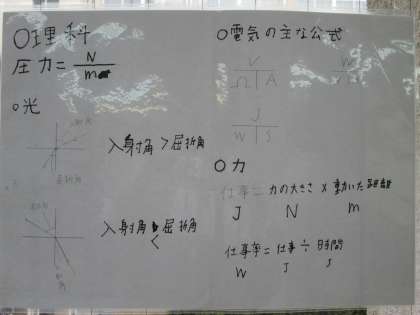 ○理科
圧力=N/m²
○光
入射角>屈折角
入射角<屈折角
○電気の主な公式
V
Ω A
W
J
W S
○力
仕事=力の大きさ×動いた距離
J N m
仕事率=仕事÷時間
W J s